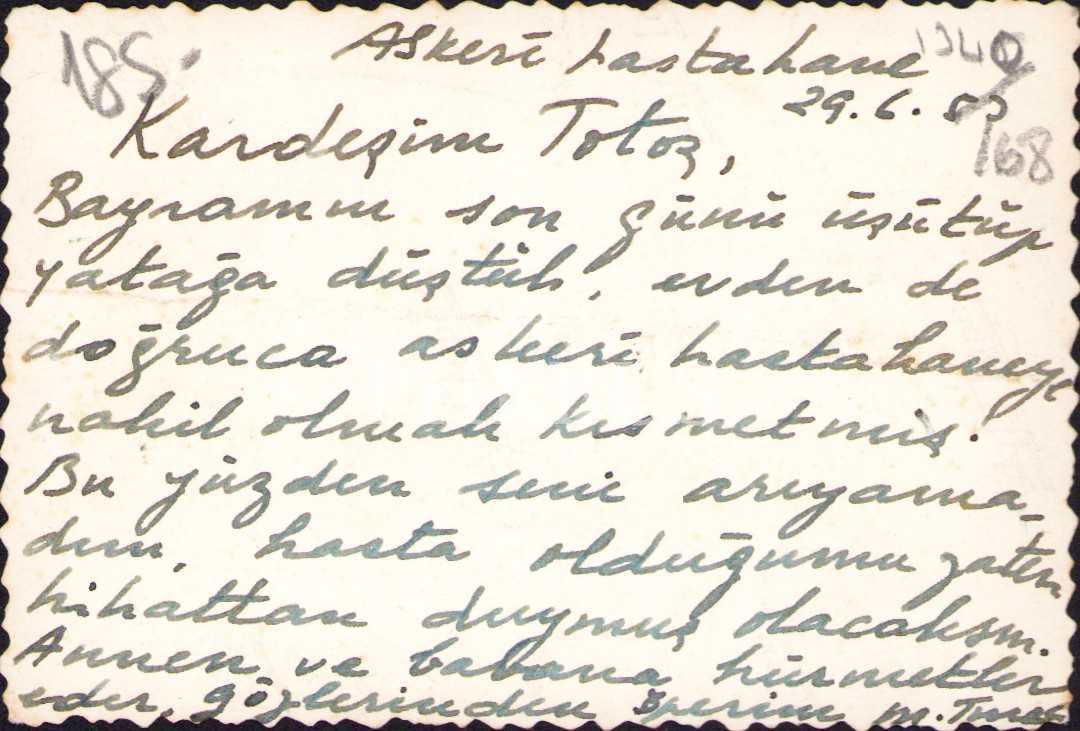 185.
Askeri hastahane
29.6.53
168
Kardeşim Totoş,
Bayramın son günü üşütüp
yatağa düştük, evden de
doğruca askeri hastahaneye
nakil olmak kısmetmiş.
Bu yüzden seni arıyama-
dım, hasta olduğumu zaten
Nihattan duymuş olacaksın.
Annen ve babana hürmetler
eder, gözlerinden öperim M.